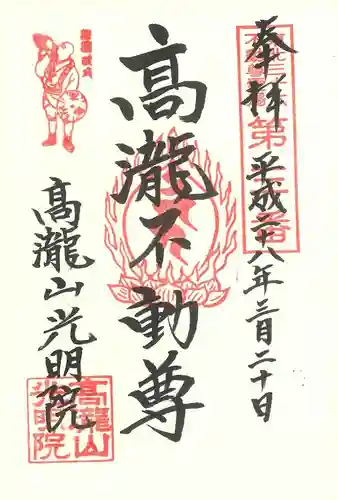 奉拝
平成二十八年三月二十日
第
番
高瀧不動尊
高瀧山光明院
高瀧山
光明院